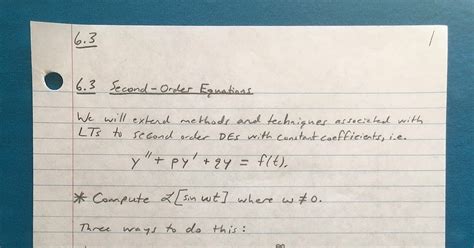 6.3 1
6.3 Second-Order Equations
We will extend methods and techniques associated with
LTs to second order DEs with constant coefficients, i.e.
y'' + py' + qy = f(t).
* Compute ℒ[sin ωt] where ω ≠ 0.
Three ways to do this: